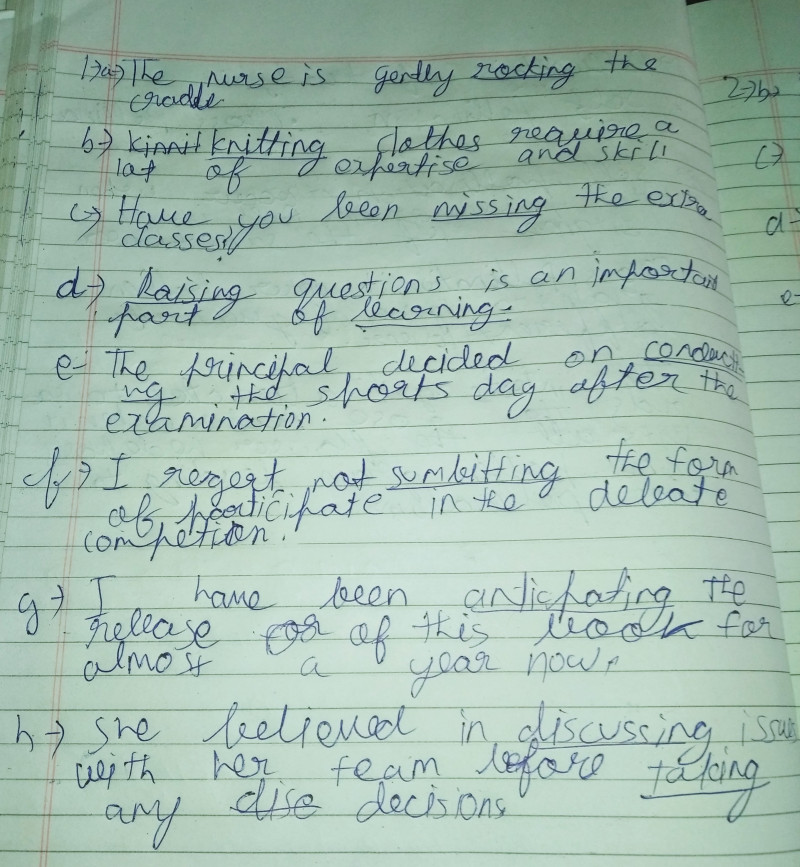 1→a→ The nurse is gently rocking the
cradde
b→ kinnit knitting clothes require a
lat of expertise and skill
c→ Have you been missing the extra
classes?
d→ Raising questions is an important
part of learning.
e- The principal decided on conducti
ng the sports day after the
examination.
f→ I regert not sumbitting the form
of participate in the debate
competion.
g→ I have been antichating the
release for of this book for
almost a year now.
h→ She believed in discussing issues
with her team before taking
any dise decisions
2→b→
c→
d→
e-